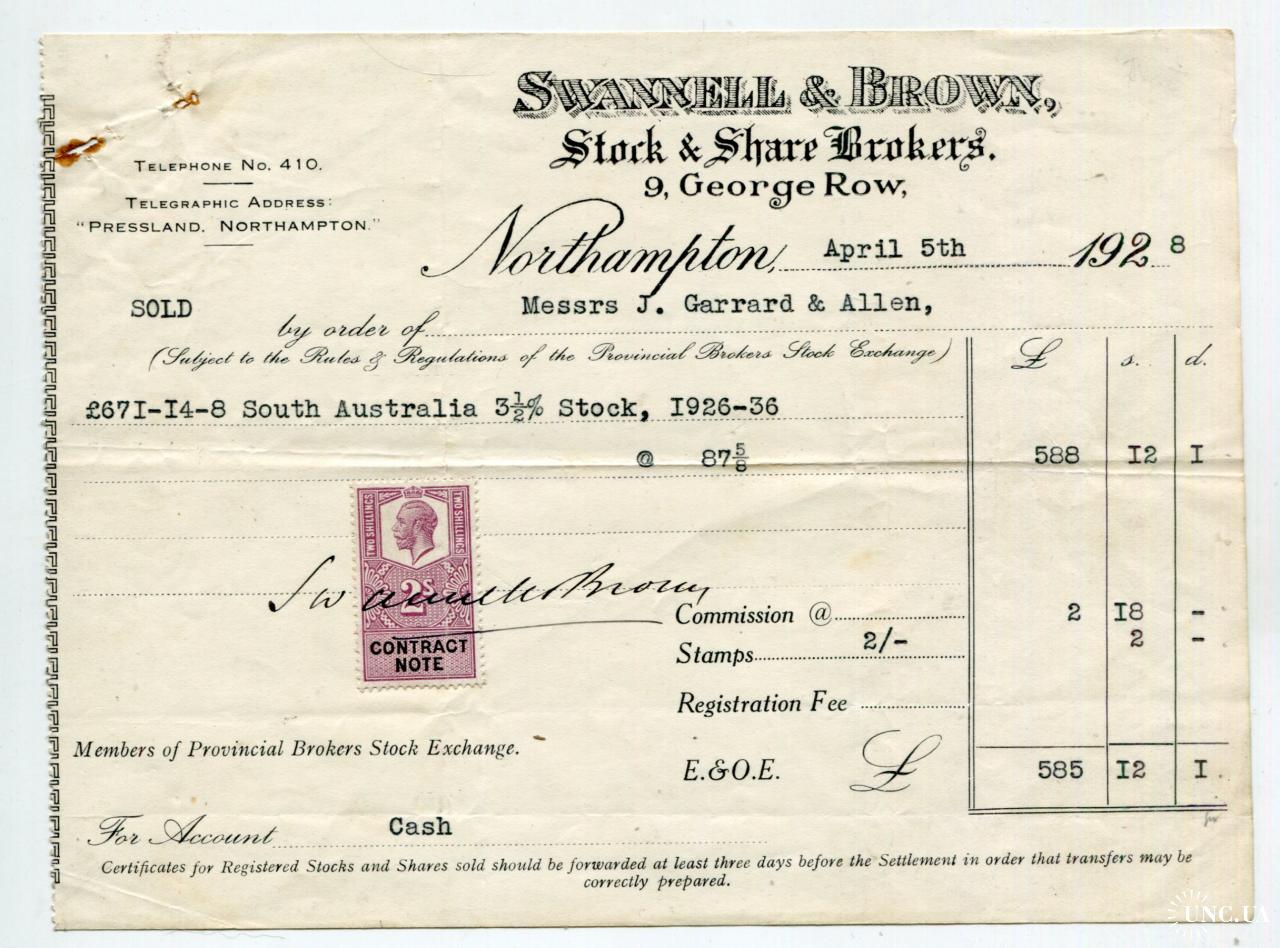 SWANNELL & BROWN,
Stock & Share Brokers.
9, George Row,
TELEPHONE No. 410.
TELEGRAPHIC ADDRESS:
"PRESSLAND, NORTHAMPTON."
Northampton, April 5th 1928
SOLD by order of Messrs J. Garrard & Allen,
(Subject to the Rules & Regulations of the Provincial Brokers Stock Exchange) £ s. d.
£67I-I4-8 South Australia 3½% Stock, I926-36
@ 87⅝ 588 I2 I
TWO SHILLINGS
TWO SHILLINGS
2S
CONTRACT
NOTE
Swannell & Brown
Commission @ 2 I8 -
Stamps 2/- 2 -
Registration Fee
Members of Provincial Brokers Stock Exchange.
E. & O.E. £ 585 I2 I.
For Account Cash
Certificates for Registered Stocks and Shares sold should be forwarded at least three days before the Settlement in order that transfers may be
correctly prepared.
UNC.UA